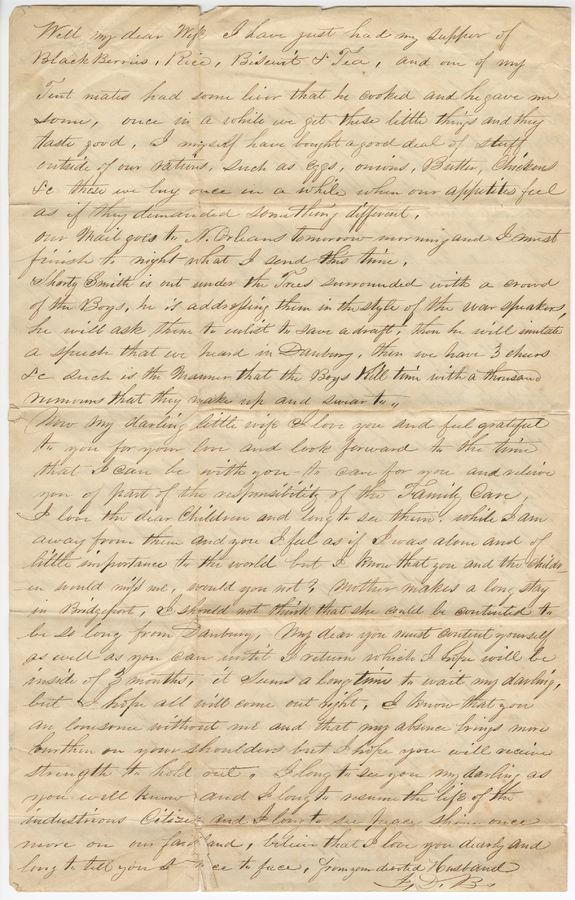 Well my dear Wife, I have just had my supper of
Black Berries, Rice, Biscuit & Tea, and one of my
Tent mates had some liver that he cooked and he gave me
some, once in a while we get these little things and they
taste good, I myself have bought a good deal of stuff
outside of our rations, such as Eggs, onions, Butter, Chickens
&c these we buy once in a while when our appetites feel
as if they demanded something different,
our Mail goes to N. Orleans tomorrow morning and I must
finish to night what I send this time,
Shorty Smith is out under the Trees surrounded with a crowd
of the Boys, he is addressing them in the style of the war speakers,
he will ask them to enlist to save a draft, then he will imitate
a speech that we heard in Danbury, then we have 3 cheers
&c such is the Manner that the Boys kill time with a thousand
rumours that they make up and swear to,,
Now my darling little wife I love you and feel grateful
to you for your love and look forward to the time
that I can be with you to care for you and relieve
you of part of the responsibility of the Family Care,
I love the dear Children and long to see them, while I am
away from them and you I feel as if I was alone and of
little importance to the world but I know that you and the childr
en would miss me, would you not? Mother makes a long stay
in Bridgeport, I should not think that she could be contented to
be so long from Danbury, My dear you must content yourself
as well as you can until I return which I hope will be
inside of 3 months, it seems a long time to wait my darling,
but I hope all will come out right, I know that you
are lonsome without me and that my absence brings more
burthen on your shoulders but I hope you will receive
strength to hold out. I long to see you my darling as
you well know and I long to resume the life of the
industrious Citizen and I long to see peace shine once
more on our fair land, believe that I love you dearly and
long to tell you I face to face, from your devoted Husband
F. D. B